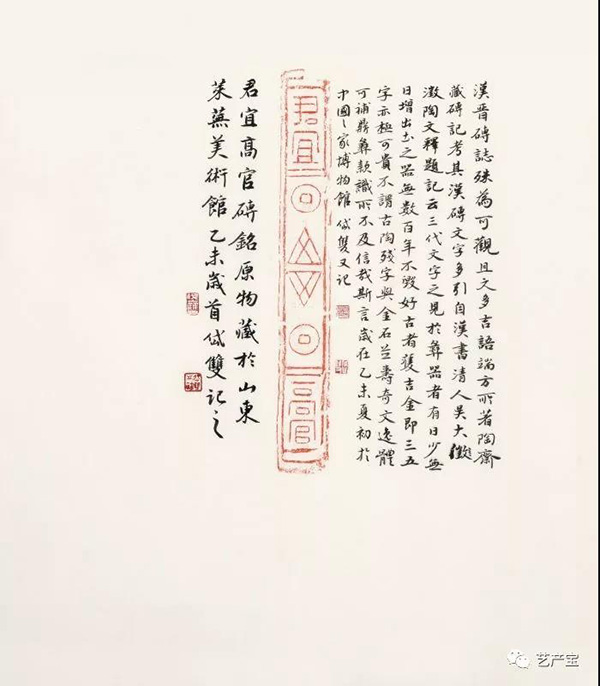 漢晋磚誌殊為可觀且文多吉語端方所著陶齋
藏磚記考其漢磚文字多引自漢書清人吳大澂
澂陶文釋題記云三代文字之見於彝器者有日少無
日增出土之器無數百年不毀好古者獲吉金即三五
字亦極可貴不謂古陶殘字與金石並壽奇文逸體
可補鼎彝款識所不及信哉斯言歲在乙未夏初於
中國々家博物館 岱雙又記
君宜高官
君宜高官磚銘原物藏於山東
萊蕪美術館乙未歲首岱雙記之
艺产宝